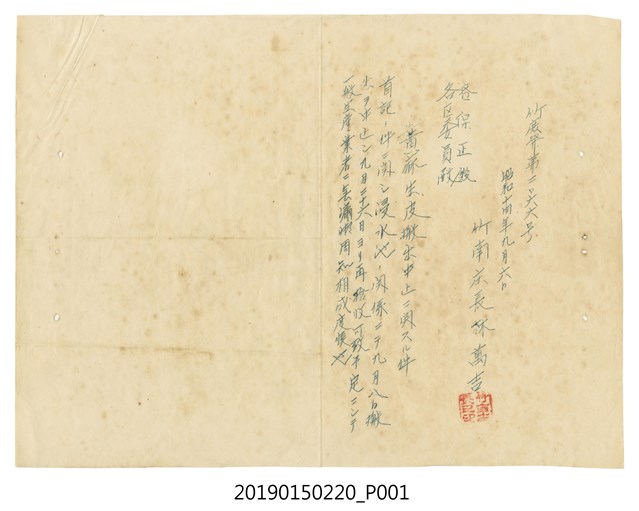 竹庶第二〇六六号
昭和十四年九月六日
竹南庄長 林萬吉
各保正殿
各区委員殿
黄麻生皮搬出中止ニ関スル件
首記ノ件ニ関シ浸水池ノ関係ニテ九月八日搬
出ヲ中止シ九月二十六日ヨリ再検収可致予定ニシテ
一般生産業者ニ無漏御周知相成度候也
20190150220_P001